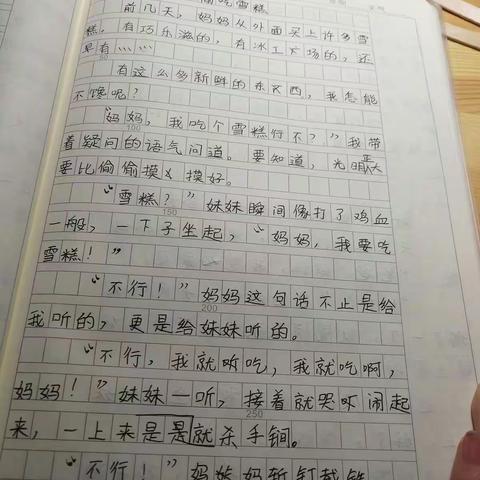 偷吃雪糕
前几天，妈妈从外面买上许多雪
糕。有巧乐滋的，有冰工厂场的，还
有
50
有这么多新鲜的东西，我怎能
不馋呢？
100
“妈妈，我吃个雪糕行不？”我带
着疑问的语气问道。要知道，光明
要比偷偷摸摸好。
“雪糕？”妹妹瞬间像打了鸡血
150
一般，一下子坐起，“妈妈，我要吃
雪糕！”
“不行！”妈妈这句话不止是给
200
我听的，更是给妹妹听的。
“不行，我就吃，我就吃啊，
妈妈！”妹妹一听，接着就哭吖闹起
250
来，一上来是是就杀手锏。
“不行！”妈妈斩钉截铁